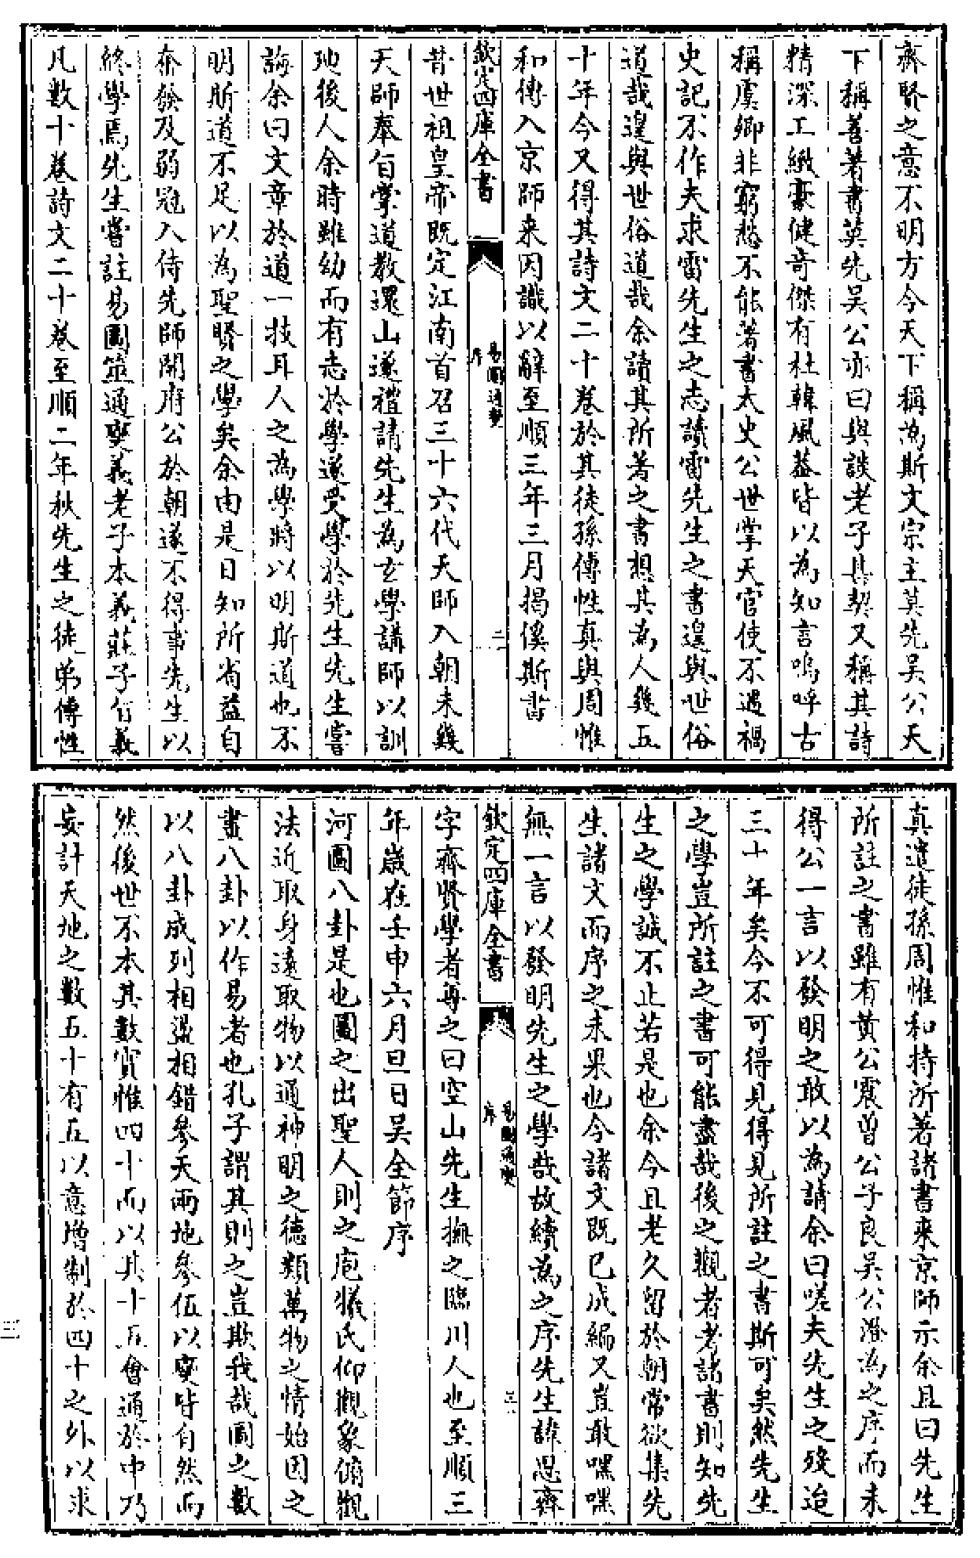 齊賢之意不明方今天下稱為斯文宗主莫先吳公天
下稱善著書莫先吳公亦曰與談老子甚契又稱其詩
精深工緻豪健奇傑有杜韓風蓋皆以為知言嗚呼古
稱虞卿非窮愁不能著書太史公世掌天官使不遇禍
史記不作夫求雷先生之志讀雷先生之書遑與世俗
道哉遑與世俗道哉余讀其所著之書想其為人幾五
十年今又得其詩文二十卷於其徒孫傅性真與周惟
和傳入京師来因識以辭至順三年三月揭傒斯書
欽定四庫全書
易圖通變
序
二
昔世祖皇帝既定江南首召三十六代天師入朝未幾
天師奉旨掌道教還山遂禮請先生為玄學講師以訓
迪後人余時雖幼而有志於學遂受學於先生先生嘗
誨余曰文章於道一技耳人之為學將以明斯道也不
明斯道不足以為聖賢之學矣余由是日知所省益自
奮發及弱冠入侍先師開府公於朝遂不得事先生以
終學焉先生嘗註易圖筮通變義老子本義莊子旨義
凡數十卷詩文二十卷至順二年秋先生之徒弟傅性
真遣徒孫周惟和持所著諸書来京師示余且曰先生
所註之書雖有黄公震曽公子良吳公澄為之序而未
得公一言以發明之敢以為請余曰嗟夫先生之歿迨
三十年矣今不可得見得見所註之書斯可矣然先生
之學豈所註之書可能盡哉後之觀者考諸書則知先
生之學誠不止若是也余今且老久留於朝常欲集先
生諸文而序之未果也今諸文既已成編又豈敢嘿嘿
無一言以發明先生之學哉故續為之序先生諱思齊
欽定四庫全書
易圖通變
序
三
字齊賢學者尊之曰空山先生撫之臨川人也至順三
年歲在壬申六月旦日吳全節序
河圖八卦是也圖之出聖人則之庖犧氏仰觀象俯觀
法近取身遠取物以通神明之德類萬物之情始因之
畫八卦以作易者也孔子謂其則之豈欺我哉圖之數
以八卦成列相盪相錯參天兩地參伍以變皆自然而
然後世不本其數實惟四十而以其十五會通於中乃
妄計天地之數五十有五以意增制於四十之外以求
三